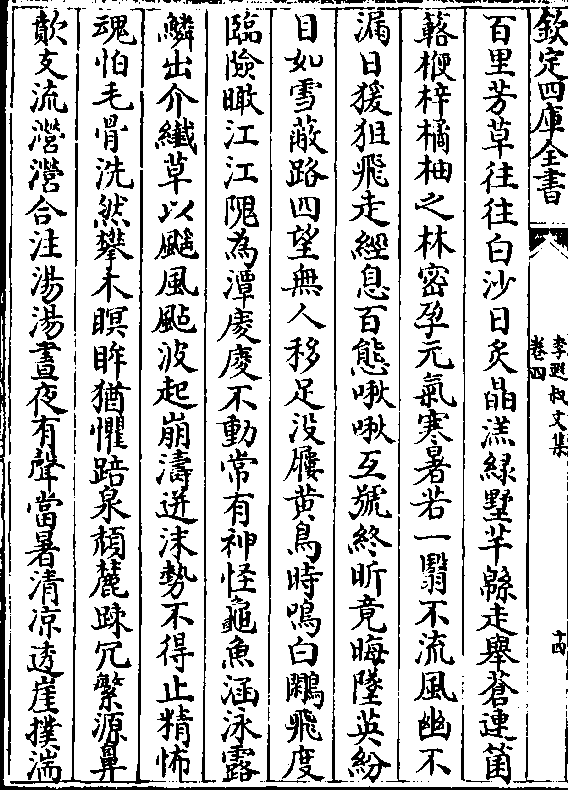 欽定四庫全書
李遐叔文集
卷四
十四
百里芳草往往白沙日炙晶漾綠墅芊緜走舉蒼連箘
簬楩梓橘柚之林密孕元氣寒暑若一翳不流風幽不
漏日猨狙飛走經息百態啾啾互號終昕竟晦墜英紛
目如雪蔽路四望無人移足没屨黄鳥時鳴白鷴飛度
臨險瞰江江隈為潭虔虔不動常有神怪龜魚涵泳露
鱗出介纎草以飈風颭波起崩濤迸沫勢不得止精怖
魂怕毛骨洗然攀木瞑眸猶懼踣泉頽麓踈冗繁源鼻
歕支流灣灣合注湯湯晝夜有聲當暑清凉透崖撲湍